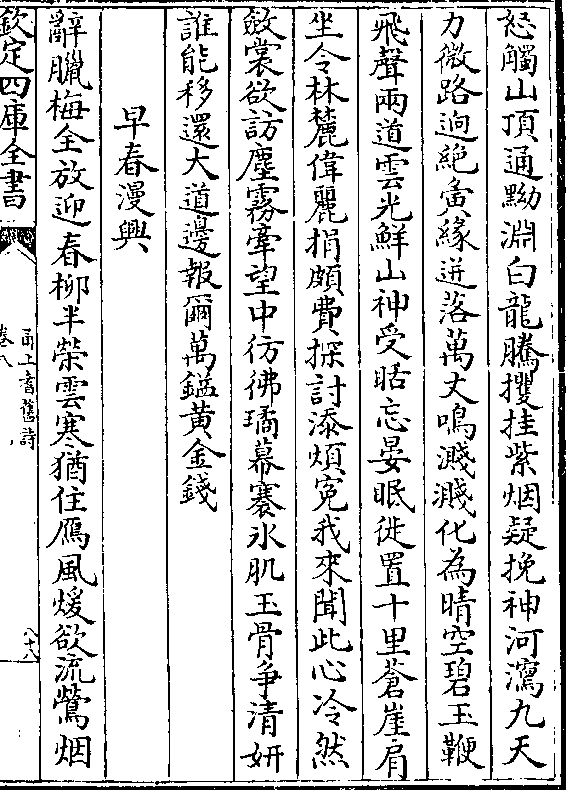 怒觸山頂通黝淵白龍騰攫挂紫烟疑挽神河瀉九天
力微路逈絶夤緣迸落萬丈鳴濺濺化為晴空碧玉鞭
飛聲兩道雲光鮮山神受䀨忘晏眠徙置十里蒼崖肩
坐令林麓偉麗捐頗費探討添煩寃我來聞此心冷然
斂裳欲訪塵霧牽望中彷彿璚幕褰氷肌玉骨爭清妍
誰能移還大道邊報爾萬鎰黄金錢
早春漫興
辭臘梅全放迎春柳半榮雲寒猶住鴈風煖欲流鶯烟
欽定四庫全書
甬上耆舊詩
卷八